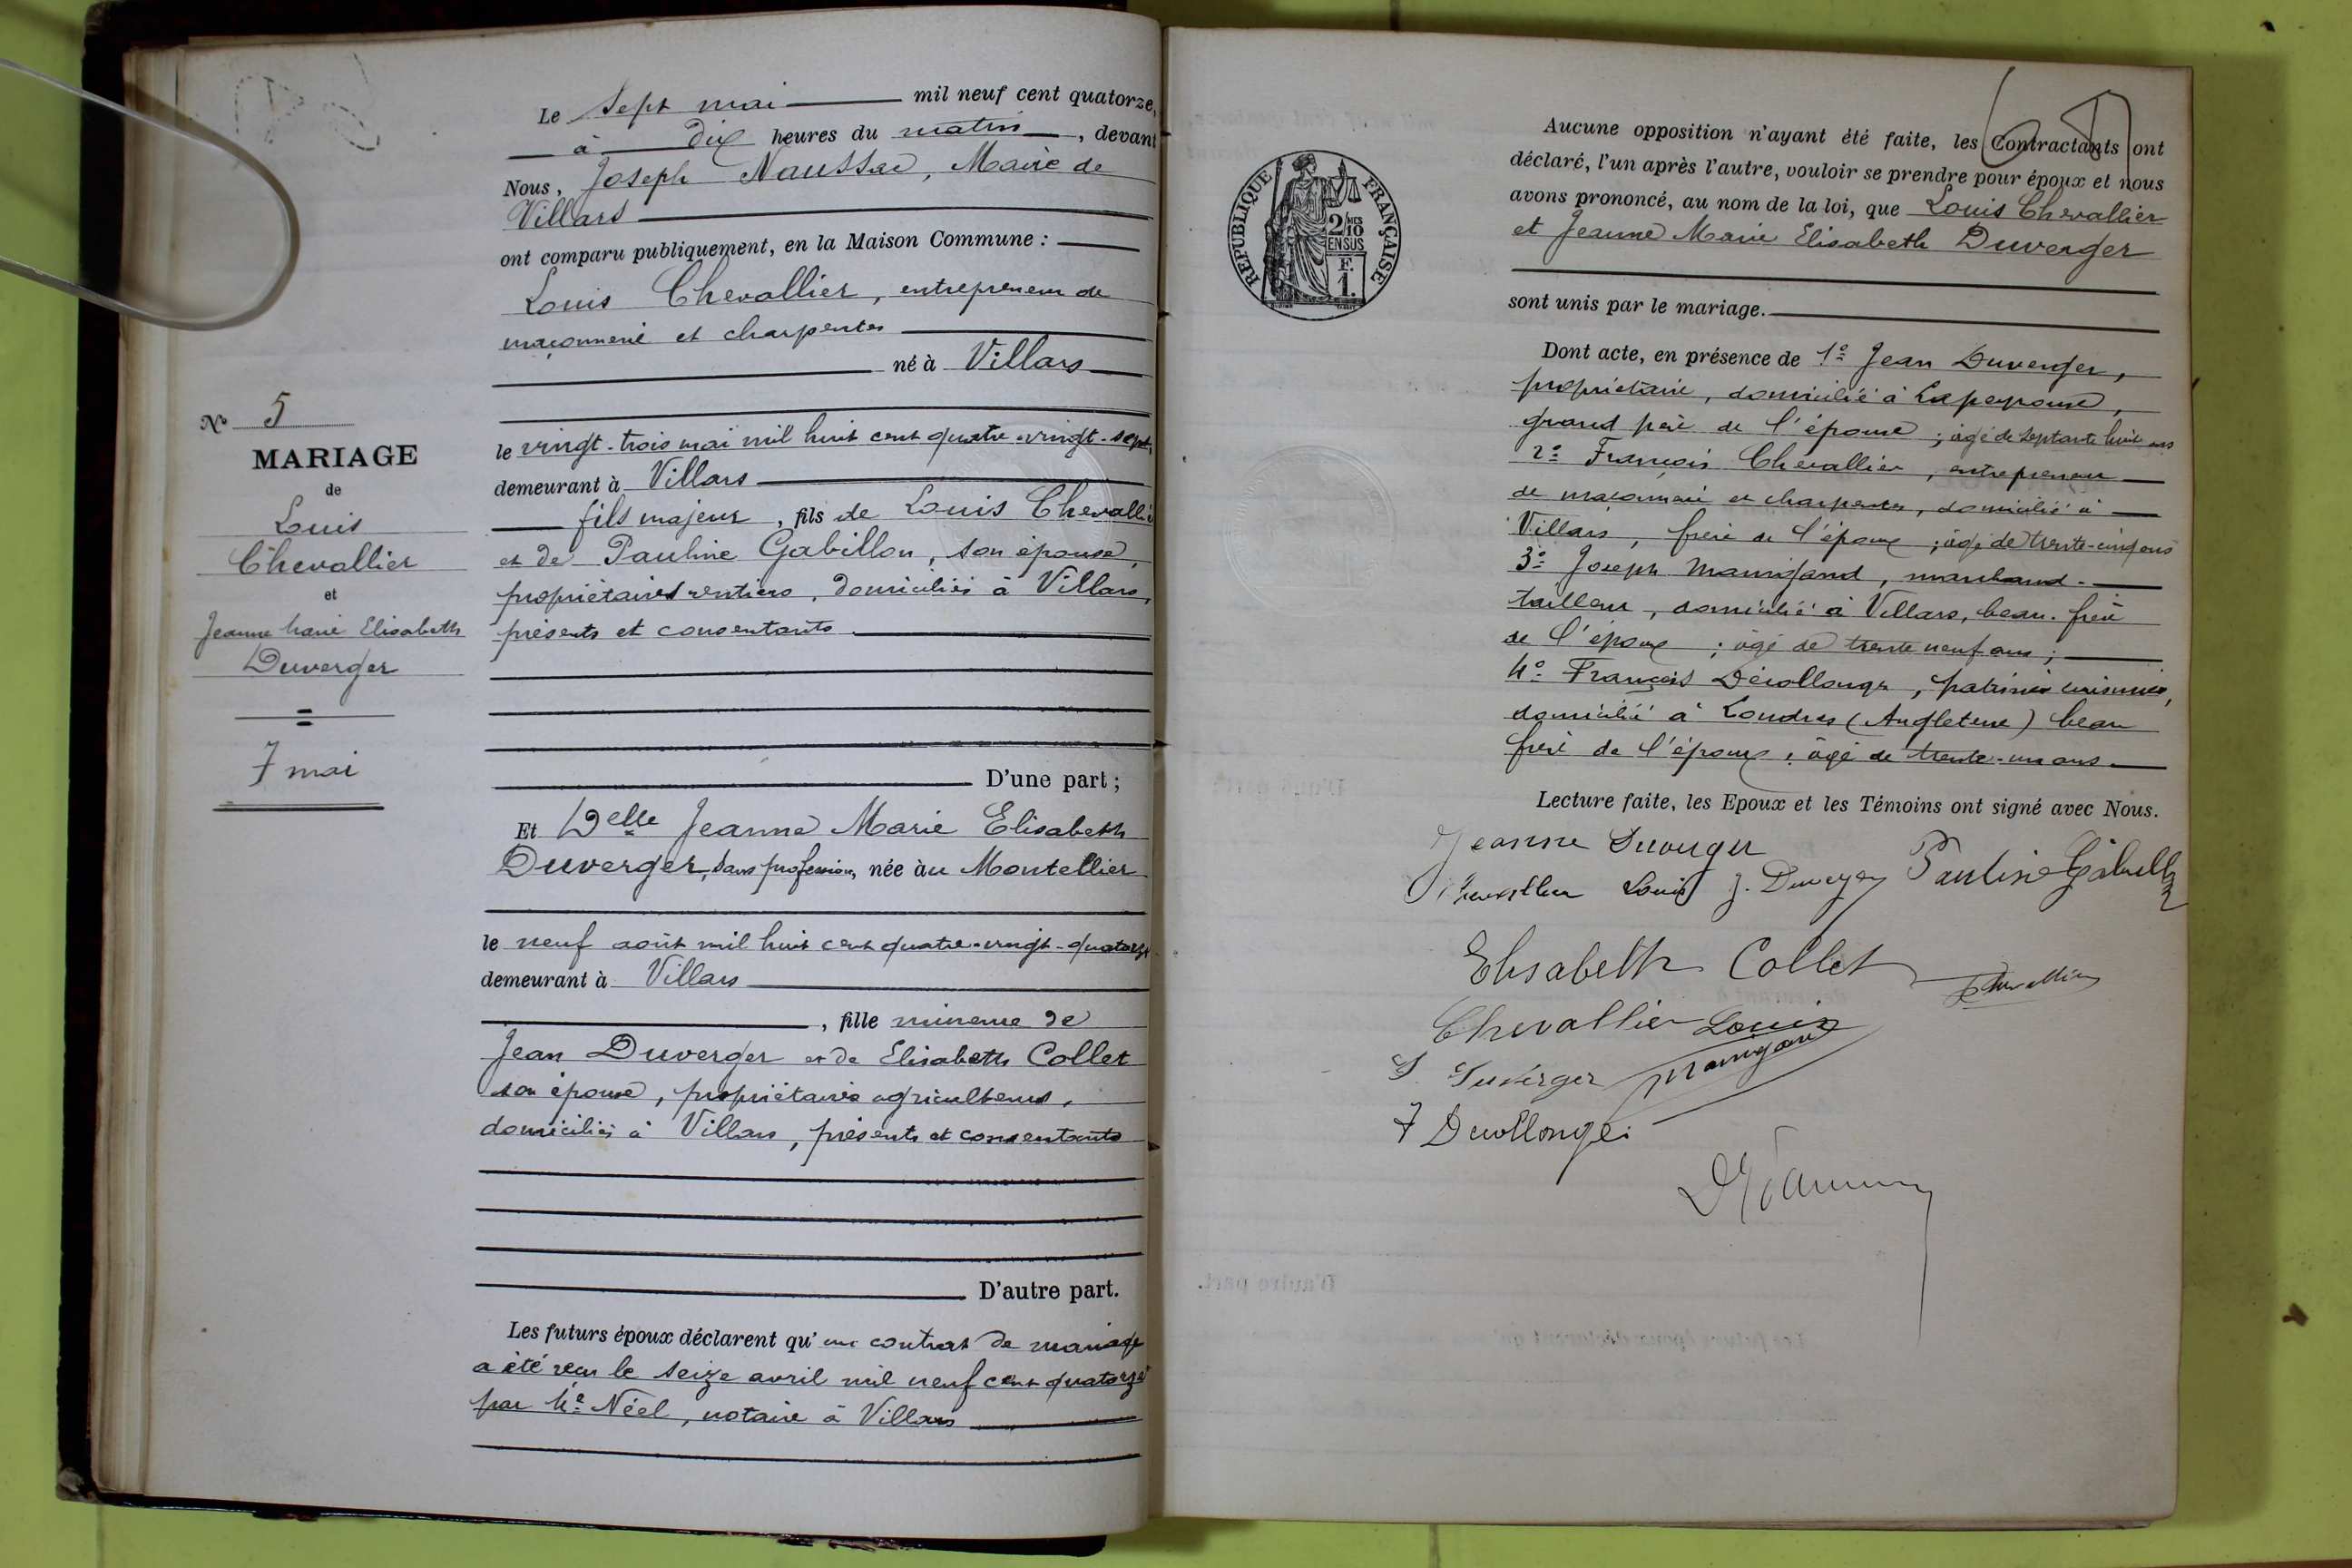 N° 5
MARIAGE
de
Louis
Chevallier
et
Jeanne Marie Elisabeth
Duverger
7 mai
Le Sept mai mil neuf cent quatorze,
à dix heures du matin, devant
Nous, Joseph Naussac, Maire de
Villars
ont comparu publiquement, en la Maison Commune :
Louis Chevallier, entrepreneur de
maçonnerie et charpentes
né à Villars
le vingt-trois mai mil huit cent quatre-vingt-sept,
demeurant à Villars
fils majeur, fils de Louis Chevallier
et de Pauline Gabillon, son épouse,
propriétaires rentiers, domiciliés à Villars,
présents et consentants
D'une part ;
Et Delle Jeanne Marie Elisabeth
Duverger, sans profession, née àu Montellier
le neuf août mil huit cent quatre-vingt-quatorze
demeurant à Villars
, fille mineure de
Jean Duverger et de Elisabeth Collet
son épouse, propriétaires agriculteurs,
domiciliés à Villars, présents et consentants
D'autre part.
Les futurs époux déclarent qu'un contrat de mariage
a été reçu le seize avril mil neuf cent quatorze
par Me Néel, notaire à Villars
RÉPUBLIQUE FRANÇAISE
2/10 MES
EN SUS
F.
1.
Aucune opposition n'ayant été faite, les Contractants ont
déclaré, l'un après l'autre, vouloir se prendre pour époux et nous
avons prononcé, au nom de la loi, que Louis Chevallier
et Jeanne Marie Elisabeth Duverger
sont unis par le mariage.
Dont acte, en présence de 1° Jean Duverger,
propriétaire, domicilié à Lapeyrouse,
grand père de l'épouse ; âgé de septante huit ans
2° François Chevallier, entrepreneur
de maçonnerie et charpentes, domicilié à
Villars, frère de l'époux ; âgé de trente-cinq ans
3° Joseph Maurigand, marchand-
tailleur, domicilié à Villars, beau-frère
de l'époux ; âgé de trente neuf ans ;
4° François Dérollonge, patissier cuisinier,
domicilié à Londres (Angleterre) beau
frère de l'époux ; âgé de trente-un ans
Lecture faite, les Epoux et les Témoins ont signé avec Nous.
Jeanne Duverger
Chevallier Louis J. Duverger Pauline Gabillon
Elisabeth Collet Chevallier
Chevallier Louis
Duverger
F Derollonge